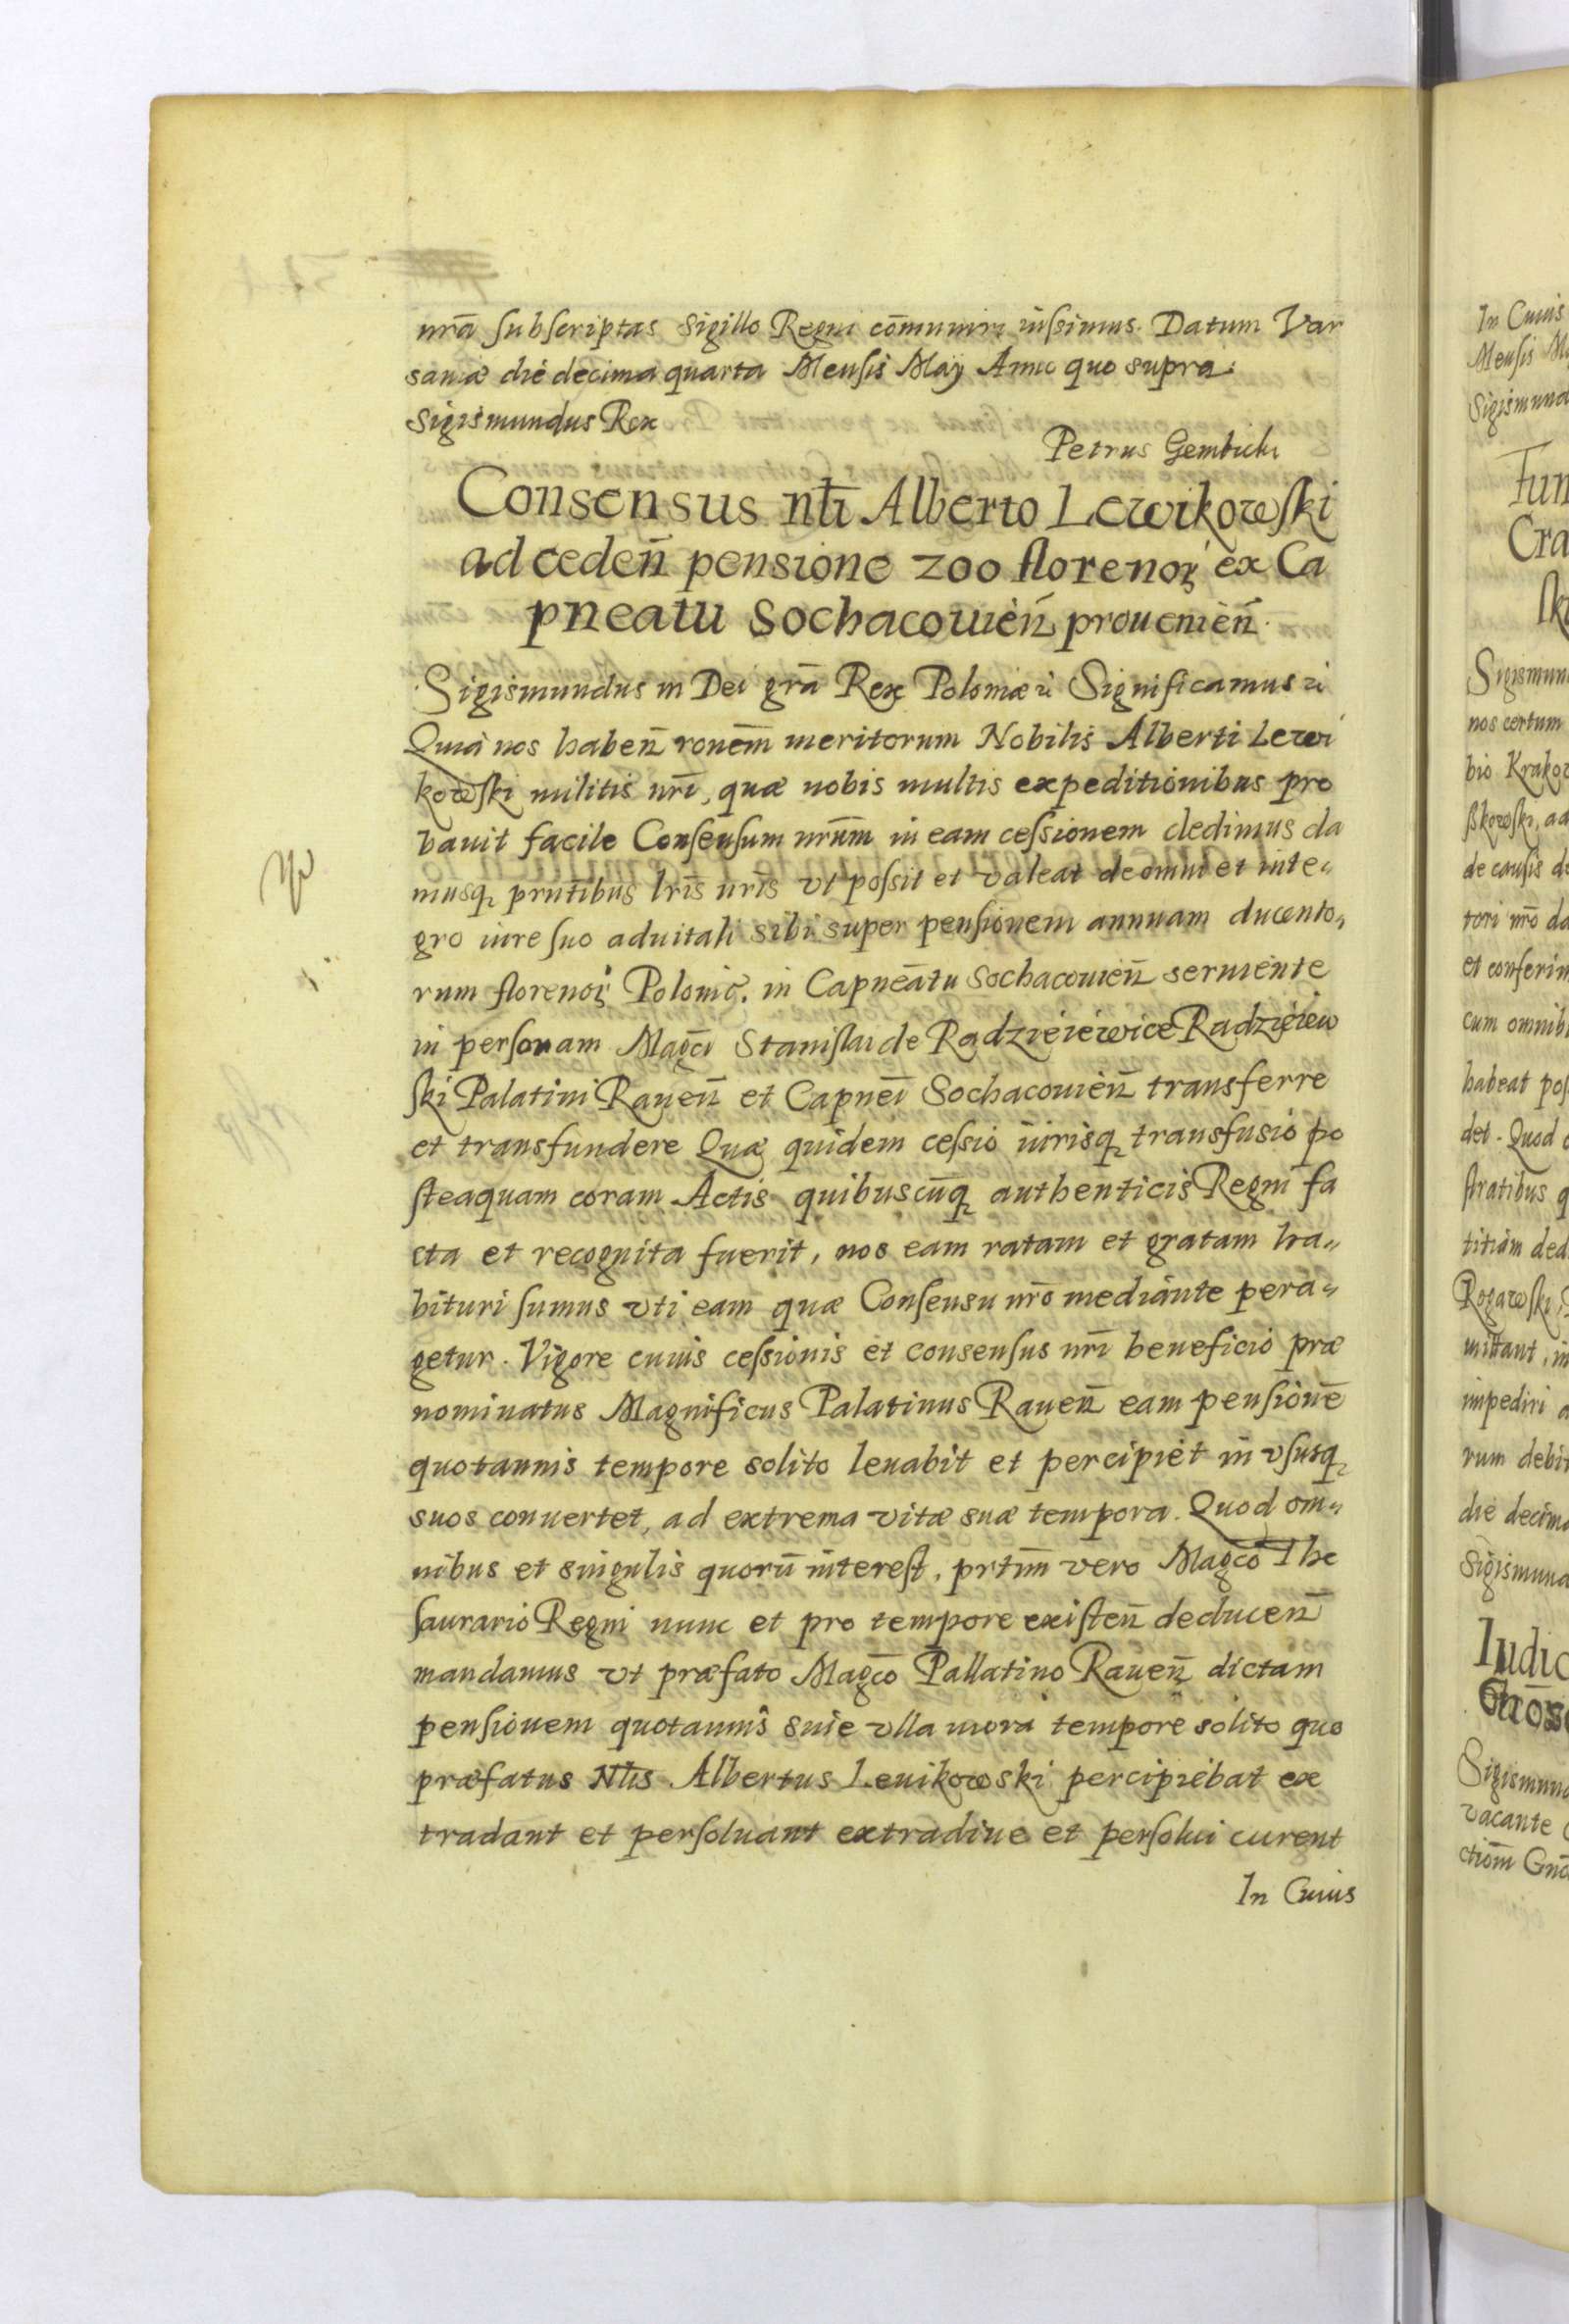 nrã subscriptas Sigillo Regni cõmuniri iussimus. Datum Var
saviæ die decima quarta Mensis Maÿ Anno quo supra.
Sigismundus Rex
Petrus Gembicki
Consensus nbli Alberto Lewikowski
ad cedeñ pensione 200 florenoꝝ ex Ca
pneatu Sochacovieñ provenieñ.
Sigismundus III Dei grã Rex Poloniæ ꝛc Significamus ꝛc
Quia nos habeñ ronẽm meritorum Nobilis Alberti Lewi
kowski militis nrĩ, quæ nobis multis expeditionibus pro
bavit facile Consensum nrũm in eam cessionem dedimus da
musqꝫ prntibus lrĩs nrĩs vt possit et valeat de omni et inte„
gro iure suo aduitali sibi super pensionem annuam ducento„
rum florenoꝝ Polonic̃. in Capneãtu Sochacovieñ serviente
in personam Magcĩ Stanislai de Radzieiewice Radzieiew
ski Palatini Raveñ et Capneĩ Sochacovieñ transferre
et transfundere Quæ quidem cessio iurisqꝫ transfusio po
steaquam coram Actis quibuscũqꝫ authenticis Regni fa
cta et recognita fuerit, nos eam ratam et gratam ha„
bituri sumus vti eam quæ Consensu nrõ mediante pera„
getur. Vigore cuius cessionis et consensus nrĩ beneficio præ
nominatus Magnificus Palatinus Raveñ eam pensionẽ
quotannis tempore solito levabit et percipiet in vsusqꝫ
suos convertet, ad extrema vitæ suæ tempora. Quod om̃„
nibus et singulis quorũ interest, prtim̃ vero Magcõ The
saurario Regni nunc et pro tempore existeñ deduceñ
mandamus vt præfato Magcõ Pallatino Raveñ dictam
pensionem quotannis sine vlla mora tempore solito quo
præfatus Nblis Albertus Levikowski percipiebat ex
tradant et persolvant extradive et persolvi curent
In Cuius
In Cuius
Mensis
Sigismund
Fun
Cra
ski
Sigismun
nos certum
bio Krakow
skowski, ad
de causis de
tori nrõ da
et conferim
cum omnib
habeat pos
det. Quod
stratibus q
titiam ded
Rogawski
mittant, in
impediri a
rum debit
die decima
Sigismund
Iudic
Sigismund
vacante
ctiom̃ Gnõ